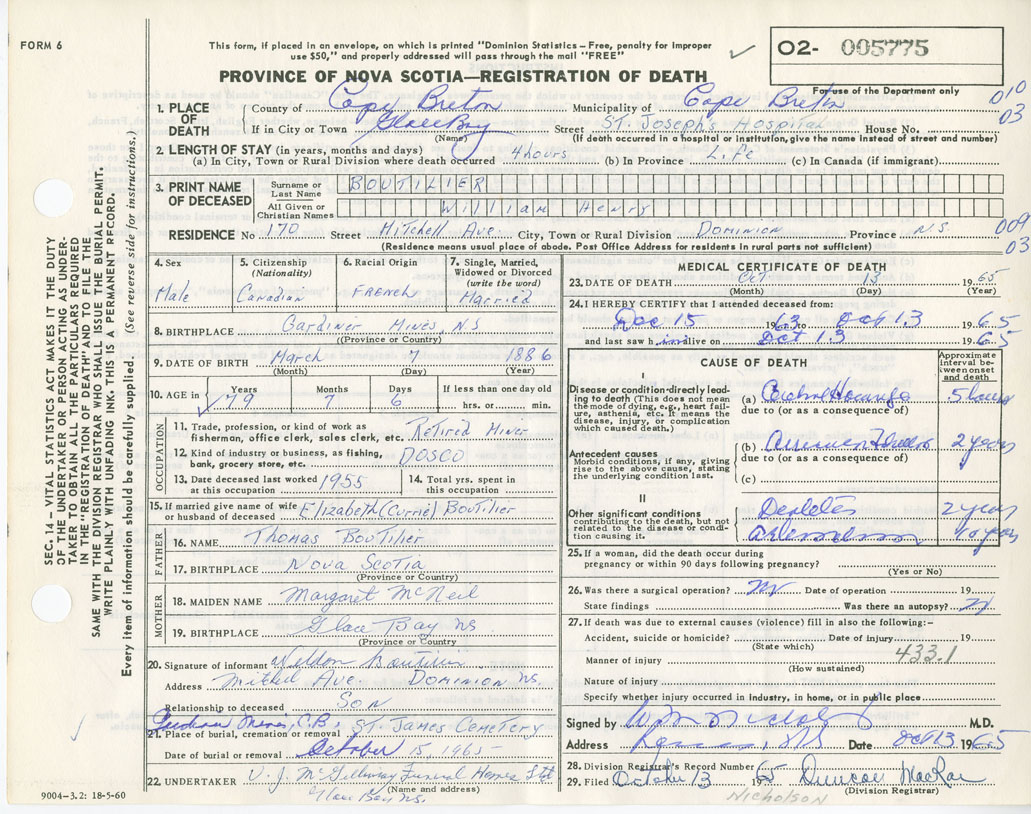 FORM 6
This form, if placed in an envelope, on which is printed "Dominion Statistics – Free, penalty for improper
use $50," and properly addressed will pass through the mail "FREE"
O2- 005775
PROVINCE OF NOVA SCOTIA—REGISTRATION OF DEATH
For use of the Department only
010
03
1. PLACE OF DEATH
County of Cape Breton Municipality of Cape Breton
If in City or Town Glace Bay Street ST. Joseph's Hospital House No.
(Name) (If death occurred in a hospital or institution, give the name instead of street and number)
2. LENGTH OF STAY (in years, months and days)
(a) In City, Town or Rural Division where death occurred 4 hours (b) In Province Life (c) In Canada (if immigrant)
3. PRINT NAME OF DECEASED
Surname or Last Name BOUTILIER
All Given or Christian Names William Henry
RESIDENCE No 170 Street Mitchell Ave. City, Town or Rural Division DOMINION Province N.S.
009
03
(Residence means usual place of abode. Post Office Address for residents in rural parts not sufficient)
4. Sex
Male
5. Citizenship
(Nationality)
Canadian
6. Racial Origin
FRENCH
7. Single, Married, Widowed or Divorced
(write the word)
Married
8. BIRTHPLACE Gardiner Mines, N.S
(Province or Country)
9. DATE OF BIRTH March 7 1886
(Month) (Day) (Year)
10. AGE in
Years 79
Months 7
Days 6
If less than one day old
hrs. or min.
OCCUPATION
11. Trade, profession, or kind of work as fisherman, office clerk, sales clerk, etc. Retired Miner
12. Kind of industry or business, as fishing, bank, grocery store, etc. DOSCO
13. Date deceased last worked at this occupation 1955
14. Total yrs. spent in this occupation
15. If married give name of wife or husband of deceased Elizabeth (Currie) Boutilier
FATHER
16. NAME Thomas Boutilier
17. BIRTHPLACE Nova Scotia
(Province or Country)
MOTHER
18. MAIDEN NAME Margaret McNeil
19. BIRTHPLACE Glace Bay NS
(Province or Country)
20. Signature of informant Weldon
Address Mitchell Ave. DOMINION N.S.
Relationship to deceased SON
21. Place of burial, cremation or removal C.B. ST. JAMES CEMETERY
Date of burial or removal October 15, 1965
22. UNDERTAKER V. J. McGillivray Funeral Homes Ltd
(Name and address)
Glace Bay NS.
9004-3.2: 18-5-60
MEDICAL CERTIFICATE OF DEATH
23. DATE OF DEATH Oct 13 1965
(Month) (Day) (Year)
24. I HEREBY CERTIFY that I attended deceased from:
Dec 15 1963 to Oct 13 1965
and last saw h im alive on Oct 13 1965
CAUSE OF DEATH
Approximate interval between onset and death
I
Disease or condition directly leading to death (This does not mean the mode of dying, e.g., heart failure, asthenia, etc. It means the disease, injury, or complication which caused death.)
(a) 5 hours
due to (or as a consequence of)
Antecedent causes
Morbid conditions, if any, giving rise to the above cause, stating the underlying condition last.
(b) 2 years
due to (or as a consequence of)
(c)
II
Other significant conditions contributing to the death, but not related to the disease or condition causing it.
Diabetes 2 years
years
25. If a woman, did the death occur during pregnancy or within 90 days following pregnancy?
(Yes or No)
26. Was there a surgical operation? Date of operation 19
State findings Was there an autopsy?
27. If death was due to external causes (violence) fill in also the following:-
Accident, suicide or homicide? Date of injury 19
(State which)
433.1
Manner of injury
(How sustained)
Nature of injury
Specify whether injury occurred in industry, in home, or in public place
Signed by M.D.
Address Date Oct 13 1965
28. Division Registrar's Record Number
29. Filed October 13 1965 Duncan MacRae
(Division Registrar)
NICHOLSON
SEC. 14 – VITAL STATISTICS ACT MAKES IT THE DUTY
OF THE UNDERTAKER OR PERSON ACTING AS UNDER-
TAKER TO OBTAIN ALL THE PARTICULARS REQUIRED
IN THE "REGISTRATION OF DEATH" AND TO FILE THE
SAME WITH THE DIVISION REGISTRAR WHO SHALL ISSUE THE BURIAL PERMIT.
WRITE PLAINLY WITH UNFADING INK. THIS IS A PERMANENT RECORD.
Every item of information should be carefully supplied. (See reverse side for instructions.)